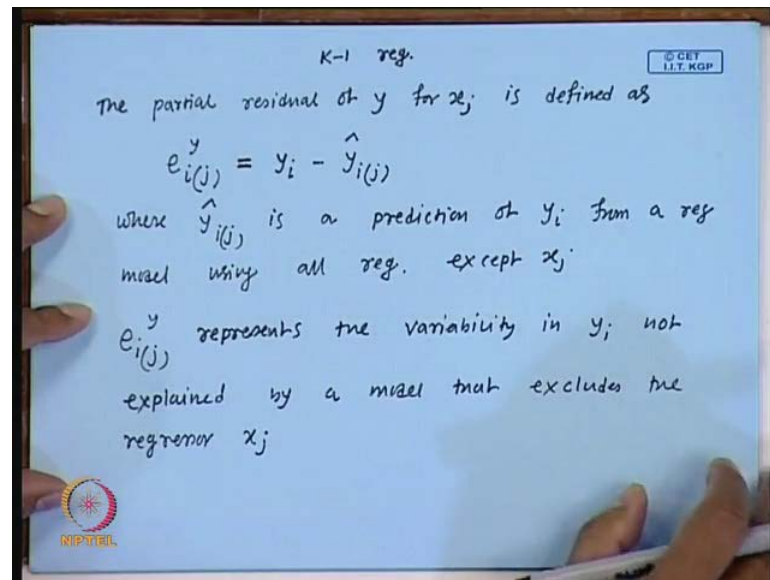 K-1 reg.
© CET
I.I.T. KGP
The partial residual of y for xj is defined as
e^y_i(j) = yi - ŷ_i(j)
where ŷ_i(j) is a prediction of yi from a reg
model using all reg. except xj
e^y_i(j) represents the variability in yi not
explained by a model that excludes the
regressor xj
NPTEL